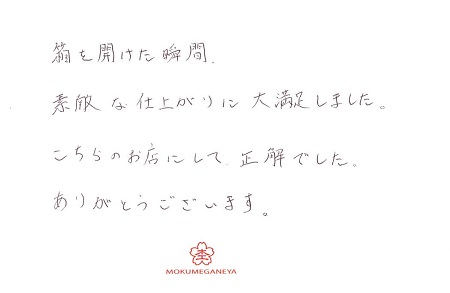 箱を開けた瞬間、
素敵な仕上がりに大満足しました。
こちらのお店にして正解でした。
ありがとうございます。
杢
MOKUMEGANEYA